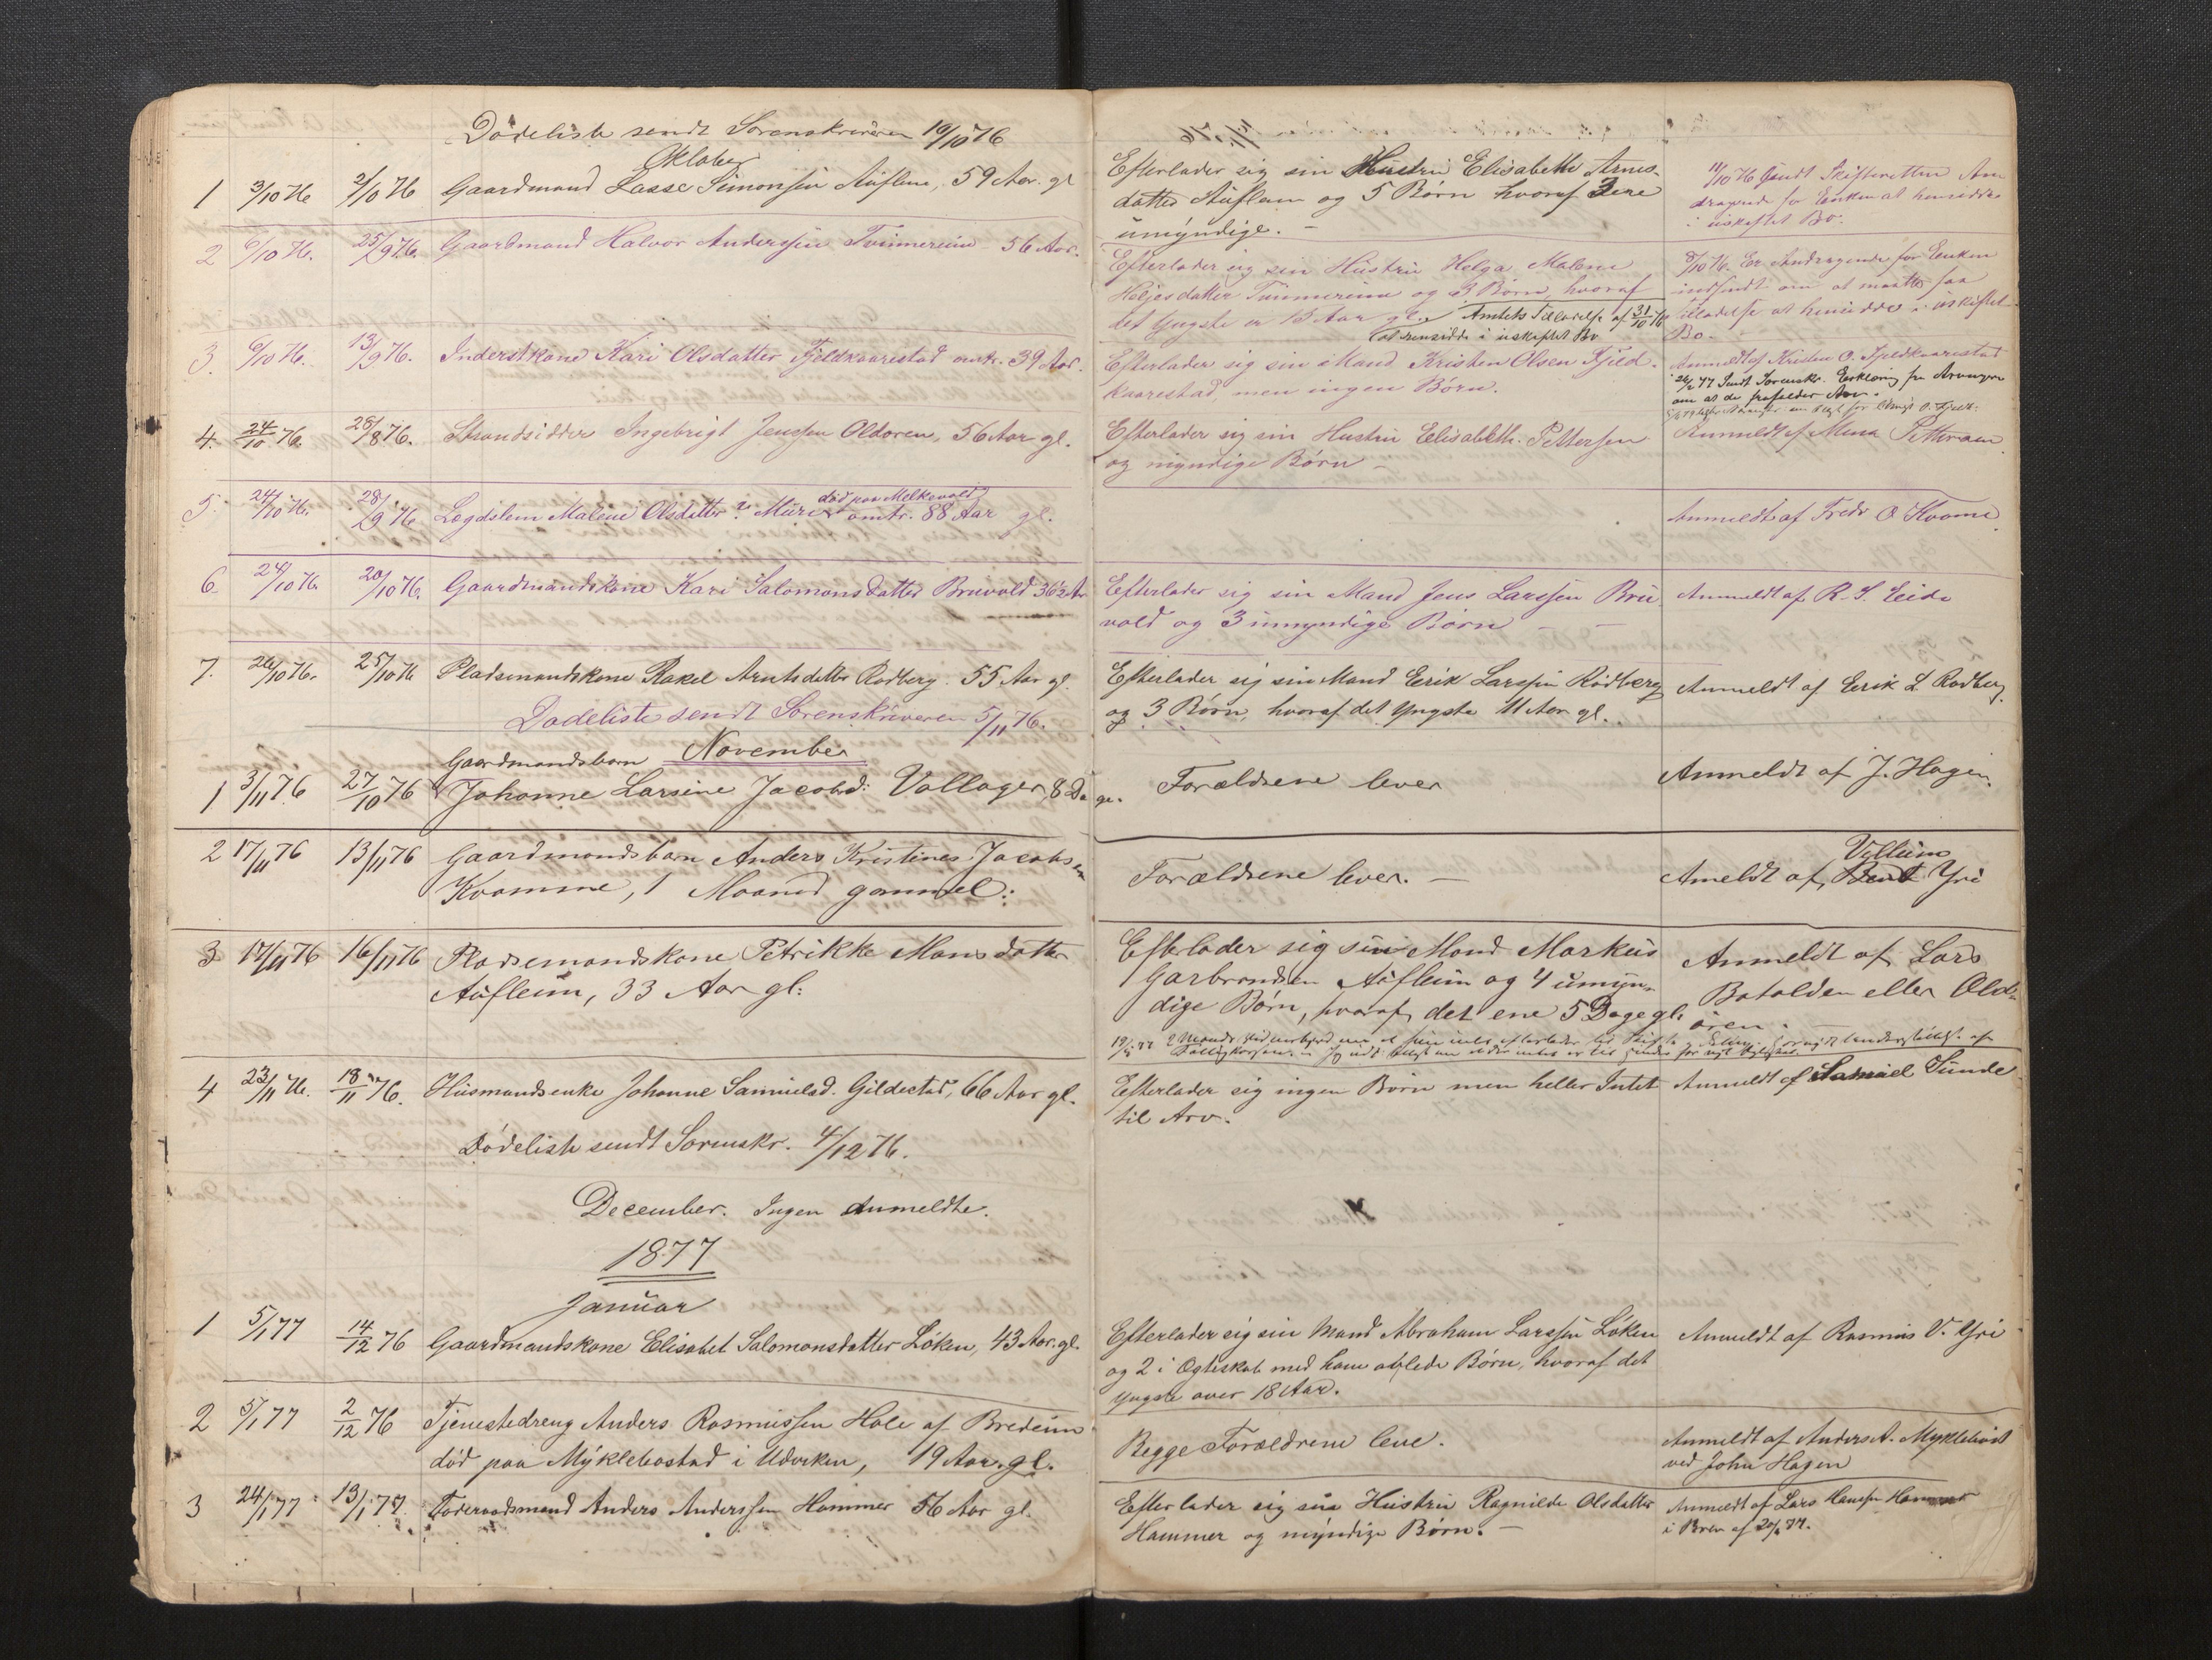 Dödeliste sendt Sorenskriveren 10/10 76
Oktober
1 3/10 76 2/10 76 Gaardmand Lasse Simonsen Aüflem, 59 Aar. gl
Efterlader sig sin Hustru Elisabeth Arnes-
datter Aüflem og 5 Børn hvoraf 3ene
ümÿndige. -
11/10 76 sendt Skifteretten An
dragende for Enken at hensidde
i üskiftet Bo.
2 6/10 76. 25/9 76. Gaardmand Halvor Anderssen Tvinnereim 56 Aar.
Efterlader sig sin Hustru Helga Malene
Heljesdatter Tvinnereim og 3 Børn, hvoraf
det Yngste er 13 Aar gl. Amtets Tilladelse af 31/10 76
at hensidde i uskiftet Bo
8/10 76. Er Andragende for Enken
indsendt om at maatte faa
Tilladelse at hensidde i uskiftet
Bo.
3. 6/10 76. 13/9 76. Inderstkone Kari Olsdatter Fjeldkaarestad omtr. 39 Aar.
Efterlader sig sin Mand Kristen Olsen Fjeld-
kaarestad, men ingen Børn.
Anmeldt af Kristen O. Fjeldkaarestad
26/2 77 Sendt Sorenskr. Erklæring fra Arvingerne
om at de frafalder Arv.
4. 24/10 76. 26/8 76. Strandsidder Ingebrigt Jenssen Oldøren, 56 Aar gl.
Efterlader sig sin Hustru Elisabeth Pettersen
og myndige Børn -
Anmeldt af Mina Petterson
5. 24/10 76. 28/9 76 Lægdslem Malene Olsdatter Müri död paa Melkevold omtr. 88 Aar gl.
Anmeldt af Fredr O Kvame
6. 24/10 76 20/10 76. Gaardmandskone Kari Salomonsdatter Bruvold 36½ Aar
Efterlader sig sin Mand Jens Larssen Brü
vold og 3 ümyndige Børn -
Anmeldt af R. S. Eide
7. 26/10 76. 25/10 76 Pladsemandskone Rakel Arntsdatter Rødberg. 55 Aar gl.
Efterlader sig sin Mand Eerik Larssen Rødberg
og 3 Børn, hvoraf det Yngste 11 Aar gl.
Anmeldt af Eerik L Rødberg.
Dødeliste sendt Sorenskriveren 5/11 76.
November
1 3/11 76 27/10 76 Gaardmandsbarn
Johanne Larsine Jacobsd: Vollager, 8 Dage.
Forældrene lever
Anmeldt af J. Hagen.
2 17/11 76 13/11 76 Gaardmandsbarn Anders Kristines Jacobsen
Kvamme, 1 Maaned gammel.
Forældrene lever. -
Ameldt af Villum Yri
3 17/11 76 16/11 76 Pladsemandskone Petrikke Monsdatter
Aüfleim, 33 Aar gl:
Efterlader sig sin Mand Markus
Garbrandsen Aüfleim og 4 ümÿn-
dige Børn, hvoraf det ene 5 Dage gl.
Anmeldt af Lars
Batalden eller Old-
ören.
4 23/11 76. 18/11 76. Hüsmandsenke Johanne Samuelsd. Gildestad, 66 Aar gl.
Efterlader sig ingen Børn men heller Intet
til Arv.
Anmeldt af Samuel Sunde
Dödeliste sendt Sorenskr. 4/12 76.
December. Ingen Anmeldte.
1877
Januar
1 5/1 77 14/12 76 Gaardmandskone Elisabet Salomonsdatter Löken, 43 Aar. gl.
Efterlader sig sin Mand Abraham Larssen Löken
og 2 i Ægteskab med ham avlede Børn, hvoraf det
yngste over 18 Aar.
Anmeldt af Rasmus V. Yri
2 5/1 77 2/12 76 Tjenestedreng Anders Rasmussen Hole af Bredeim
död paa Mÿklebostad i Udviken, 19 Aar. gl.
Begge Forældrene leve.
Anmeldt af Anders A. Myklebust
ved John Hagen
3 24/1 77 13/1 77. Foderaadsmand Anders Anderssen Hammer 56 Aar gl.
Efterlader sig sin Hüstrü Ragnilde Olsdatter
Hammer og mÿndige Børn. -
Anmeldt af Lars Hansen Hammer
i Brev af 20/1 77.